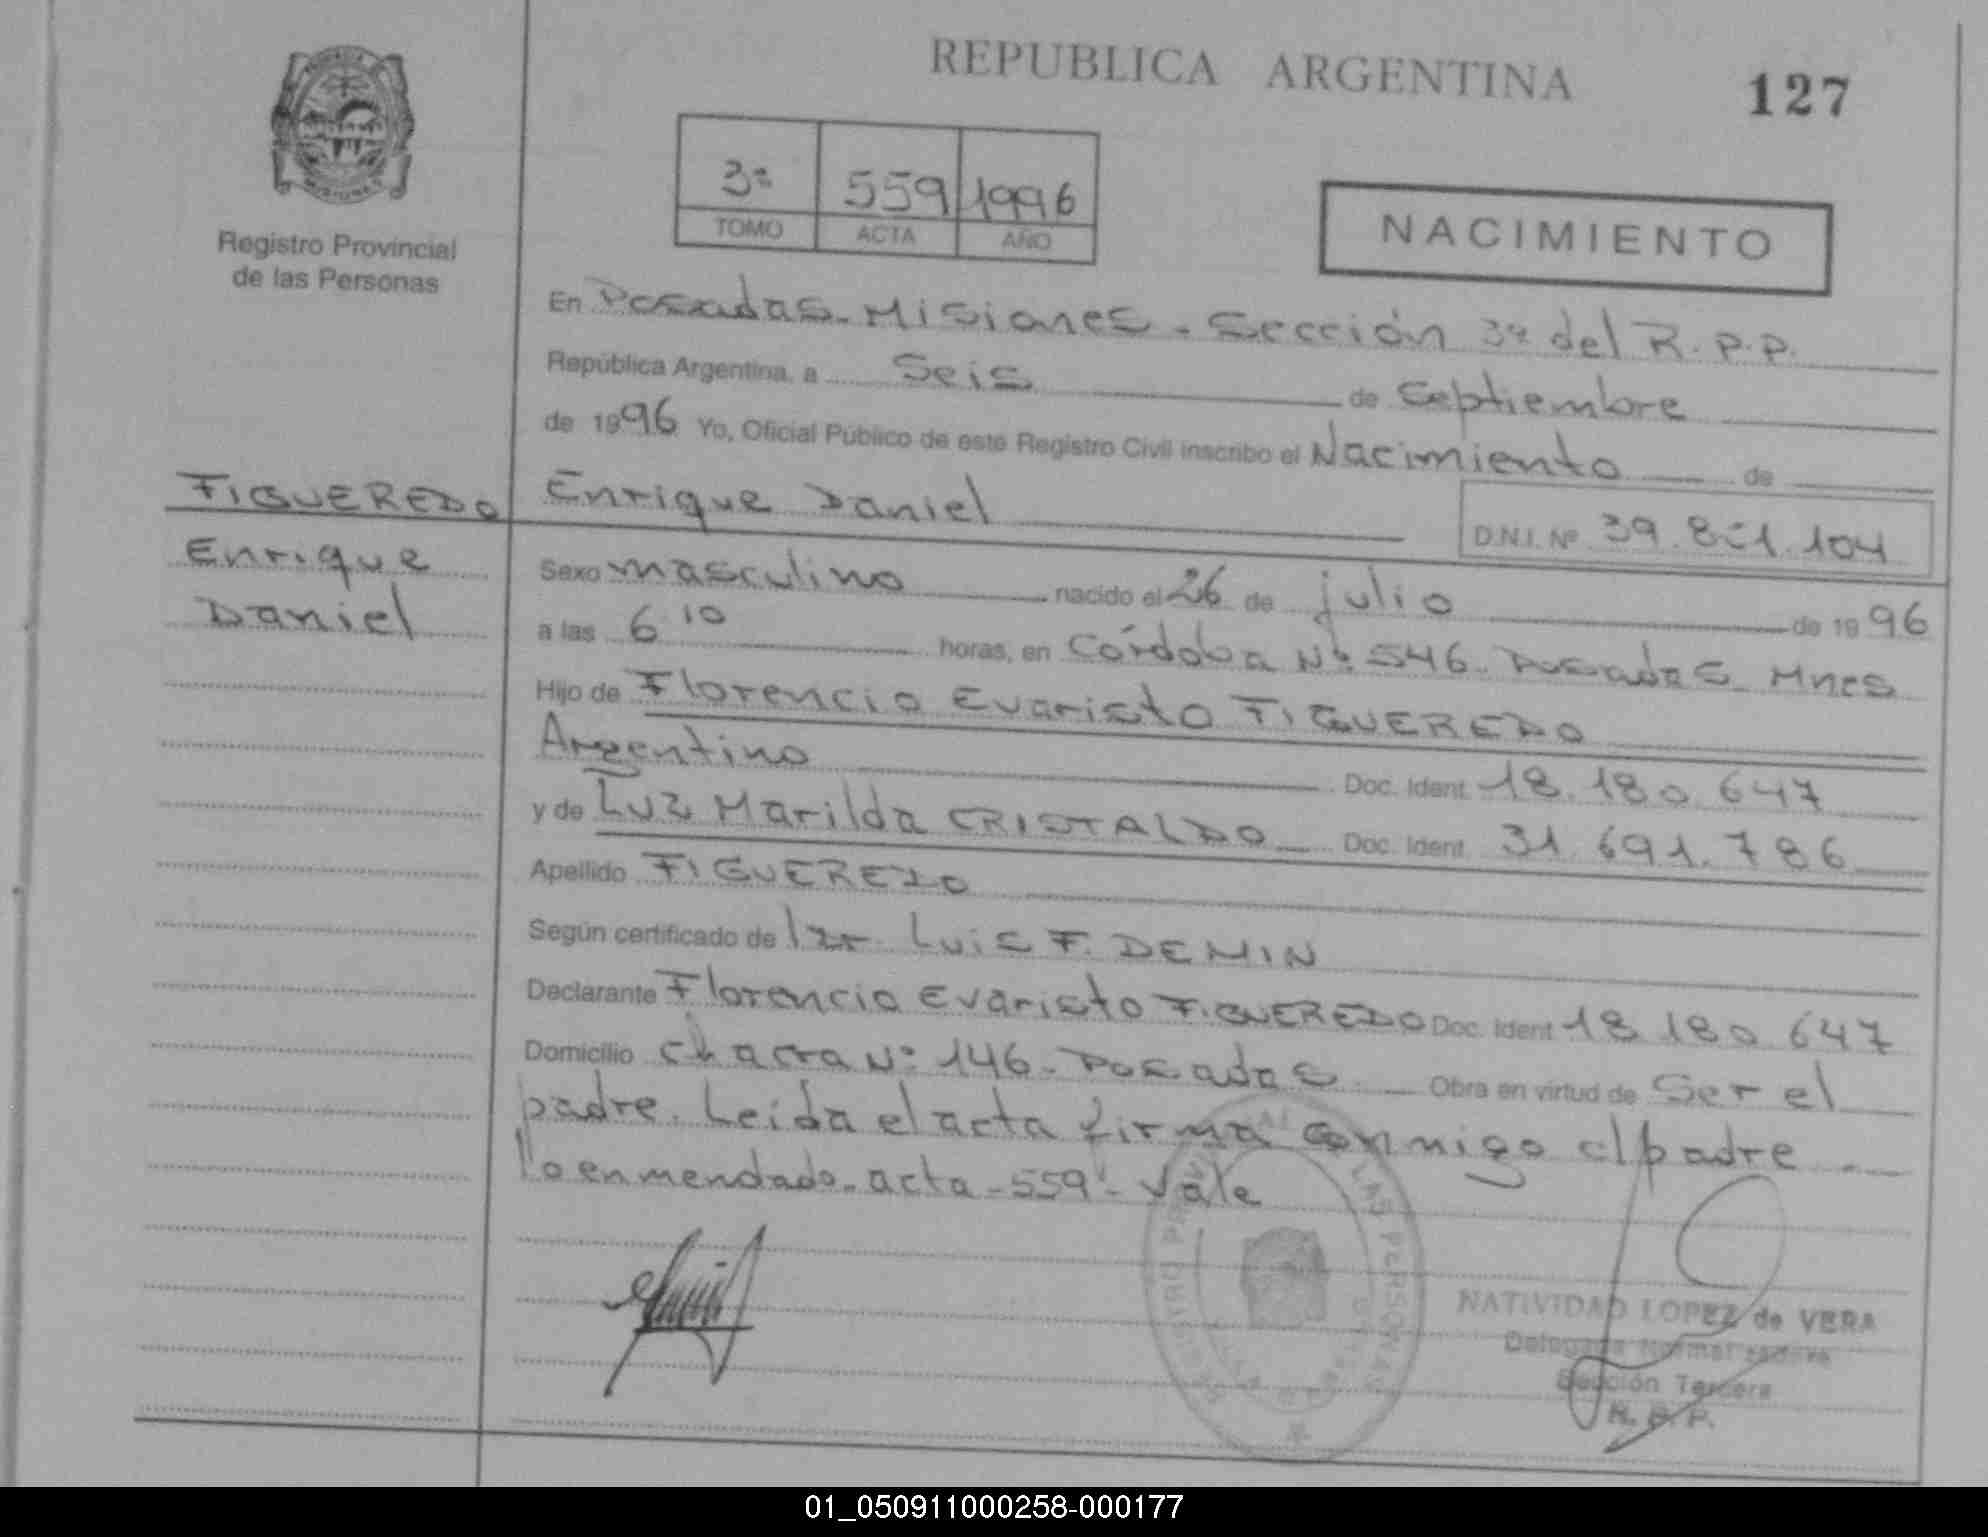 REPUBLICA ARGENTINA
127
MISIONES
Registro Provincial
de las Personas
3ª 559 1996
TOMO ACTA AÑO
NACIMIENTO
En Posadas - Misiones - Sección 3ª del R.P.P.
República Argentina, a Seis de Septiembre
de 1996 Yo, Oficial Público de este Registro Civil inscribo el Nacimiento de
FIGUEREDO Enrique Daniel
D.N.I. Nº 39. 104
Enrique
Daniel
Sexo masculino nacido el 26 de julio de 1996
a las 6 10 horas, en Córdoba Nº 546 - Posadas - Mnes
Hijo de Florencio Evaristo FIGUEREDO
Argentino Doc. Ident. 18.180.647
y de Luz Marilda CRISTALDO Doc. Ident. 31.691.786
Apellido FIGUEREDO
Según certificado de Dr. Luis F. DEMIN
Declarante Florencio Evaristo FIGUEREDO Doc. Ident. 18.180.647
Domicilio chacra Nº 146 - Posadas Obra en virtud de Ser el
padre. Leída el acta firma conmigo el padre
lo enmendado - acta - 559 - Vale
REGISTRO PROVINCIAL DE LAS PERSONAS
NATIVIDAD LOPEZ de VERA
Sección Tercera
R. P. P.
01_050911000258-000177